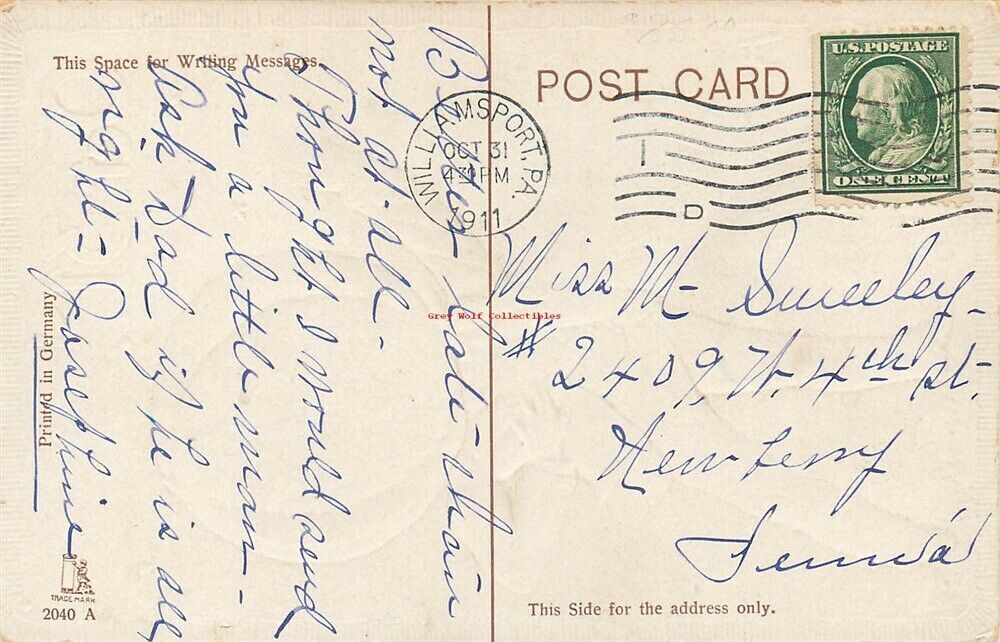 This Space for Writing Messages.
Better late-than
not at-all-
Thought I would send
you a little man-
Ask Dad if he is all
right- Josephine
Printed in Germany
TRADE MARK
2040 A
POST CARD
WILLIAMSPORT, PA.
OCT 31
430 PM
1911
1
D
U.S. POSTAGE
ONE CENT
Miss M- Sweeley-
# 2409, W. 4th st.
Newberry
Penna
This Side for the address only.
Grey Wolf Collectibles